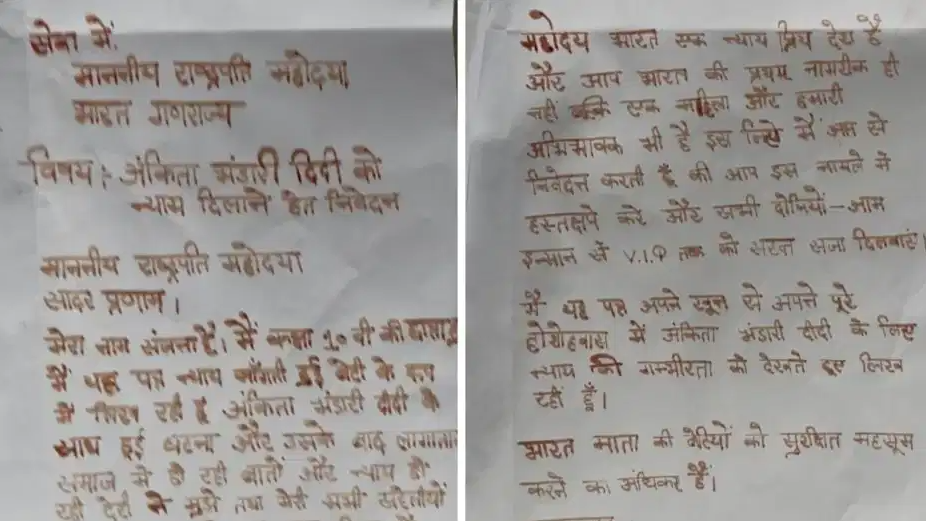 सेवा में,
माननीय राष्ट्रपति महोदया
भारत गणराज्य
विषय:- अंकिता भंडारी दिदी को
न्याय दिलाने हेतु निवेदन
माननीय राष्ट्रपति महोदया
सादर प्रणाम।
मेरा नाम संजना है। मैं कक्षा 10 वी की छात्रा हूं
मैं यह पत्र न्याय माँगती हुई बेटी के रूप
में लिख रही हूं अंकिता भंडारी दीदी के
साथ हुई घटना और उसके बाद लागातार
समाज में हो रही बातों और न्याय हो
रही देरी ने मुझे तथा मेरी सभी सहेलीयों
महोदय भारत एक न्याय प्रिय देश है
और आप भारत की प्रथम नागरीक ही
नहीं बल्कि एक महिला और हमारी
अभिभावक भी है इस लिए मैं आप से
निवेदन करती हूँ की आप इस मामले में
हस्तक्षपे करे और सभी दोषियों - आम
इन्सान से V.I.P तक को सख्त सजा दिलवाएं।
मैं यह पत्र अपने खून से अपने पूरे
होशोहवाश में अंकिता भंडारी दीदी के लिए
न्याय की गम्भीरता को देखते हुए लिख
रही हूँ।
भारत माता की बेटियों को सुरक्षित महसूस
करने का अधिकार है।